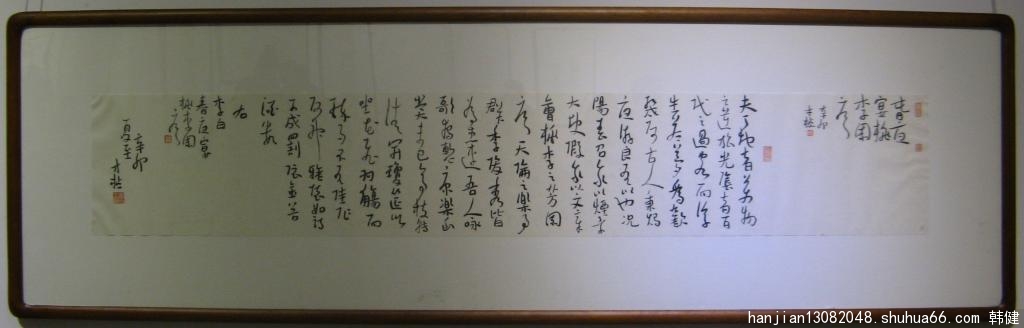 春夜
宴桃
李园
序
辛卯
夫天地者万物
之逆旅光陰者百
代之過客而浮
生若夢为歡
幾何古人秉燭
夜游良有以也况
陽春召我以煙景
大块假我以文章
會桃李之芳园
序天倫之樂事
群季俊秀皆
为惠連吾人咏
歌獨慙康樂幽
賞未已高談转
清開瓊筵以
坐花飞羽觴而
醉月不有佳作
何伸雅懷如詩
不成罰依金谷
酒数
右
李白
春夜宴
桃李园
序
辛卯
夏至
hanjian13082048.shuhua66.com 韩健